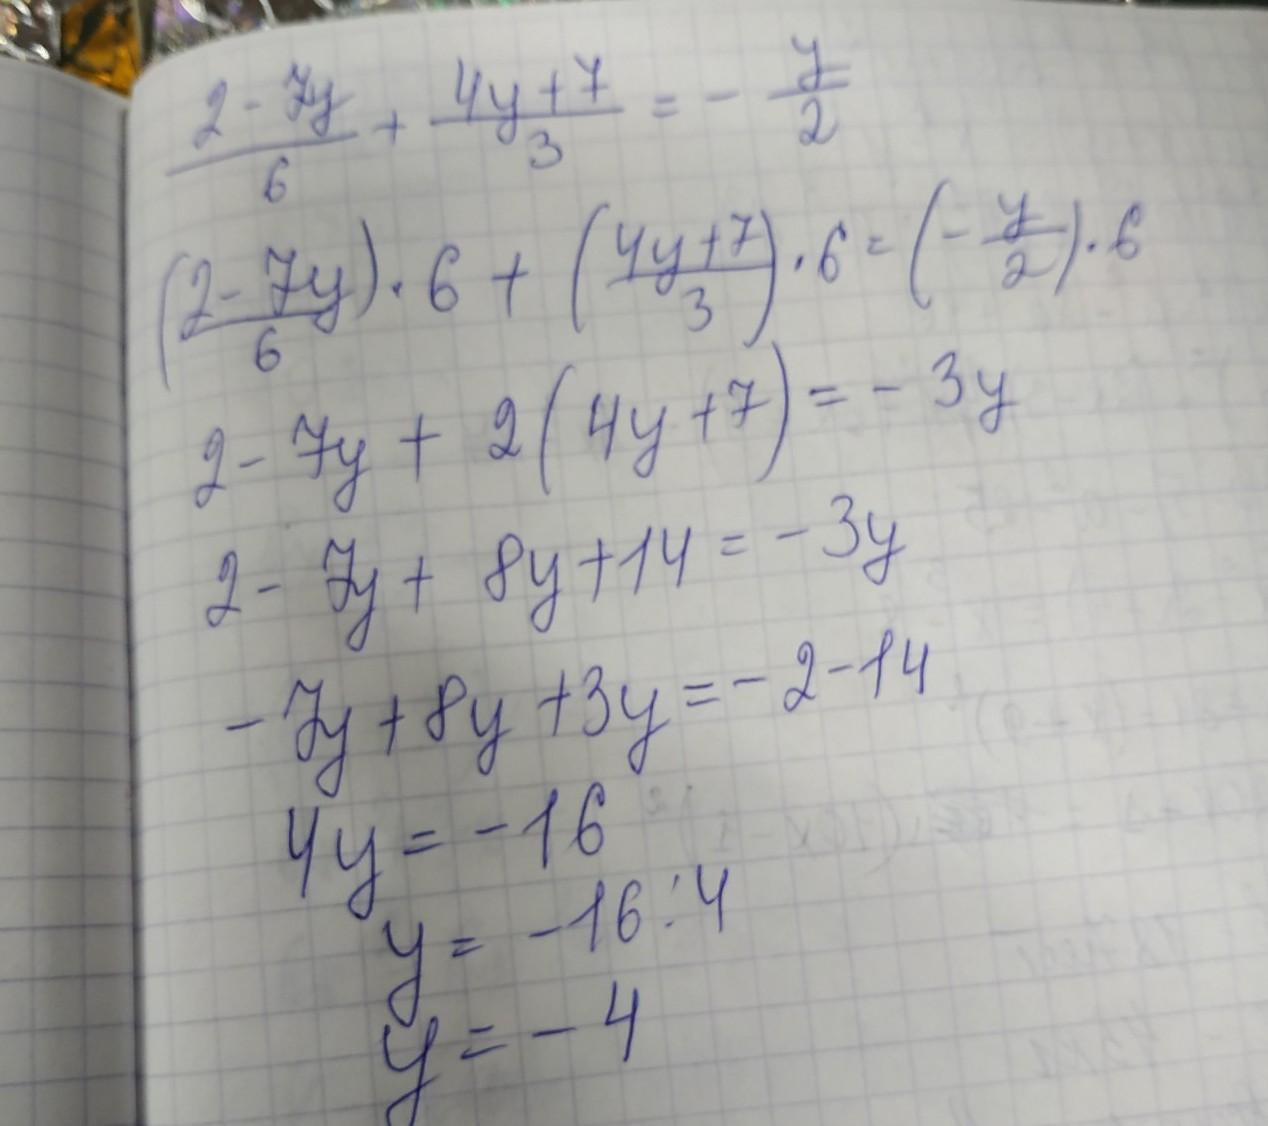 (2-7y)/6 + (4y+7)/3 = - y/2
((2-7y)/6) · 6 + ((4y+7)/3) · 6 = (- y/2) · 6
2 - 7y + 2(4y+7) = - 3y
2 - 7y + 8y + 14 = - 3y
- 7y + 8y + 3y = - 2 - 14
4y = - 16
y = - 16 : 4
y = - 4